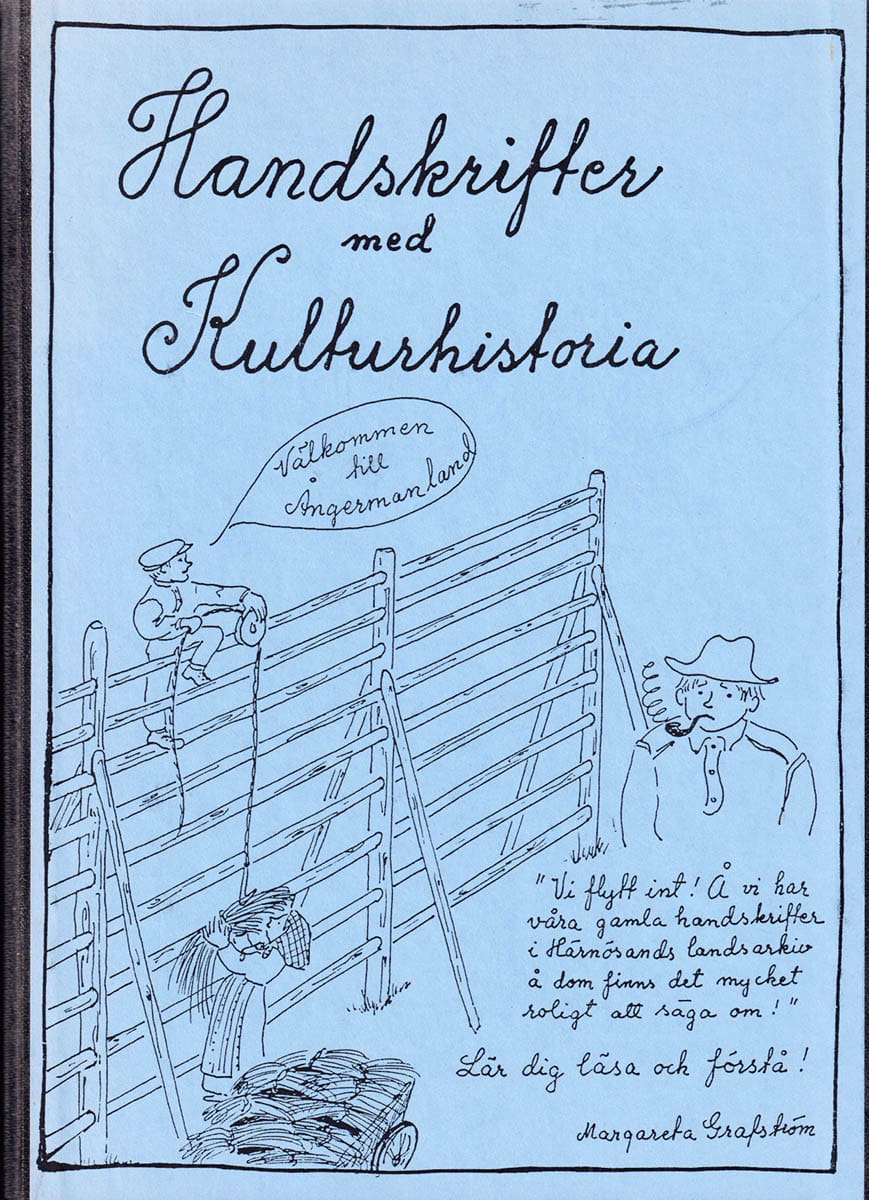 Handskrifter
med
Kulturhistoria
Välkommen
till
Ångermanland
"Vi flytt int! Å vi har
våra gamla handskrifter
i Härnösands landsarkiv
å dom finns det mycket
roligt att säga om!"
Lär dig läsa och förstå!
Margareta Grafström